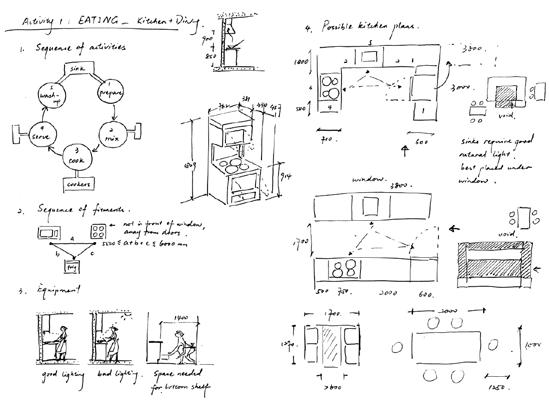 Activity 1: EATING - Kitchen + Dining
1. Sequence of activities
sink
1
prepare
2
mix
3
cook
4
serve
5
wash-
up
cookers
2. Sequence of
not in front of window,
away from doors.
a
b
c
3. Equipment
good lighting
bad lighting
1400
Space needed
for bottom shelf
900
850
914
4. Possible kitchen plans.
5
2
2
1
4
1
500
700
600
3800
3000
void.
sinks require good
natural light.
best placed under
window.
window.
3800
1700
500
750
2000
600
void.
1700
2000
1250